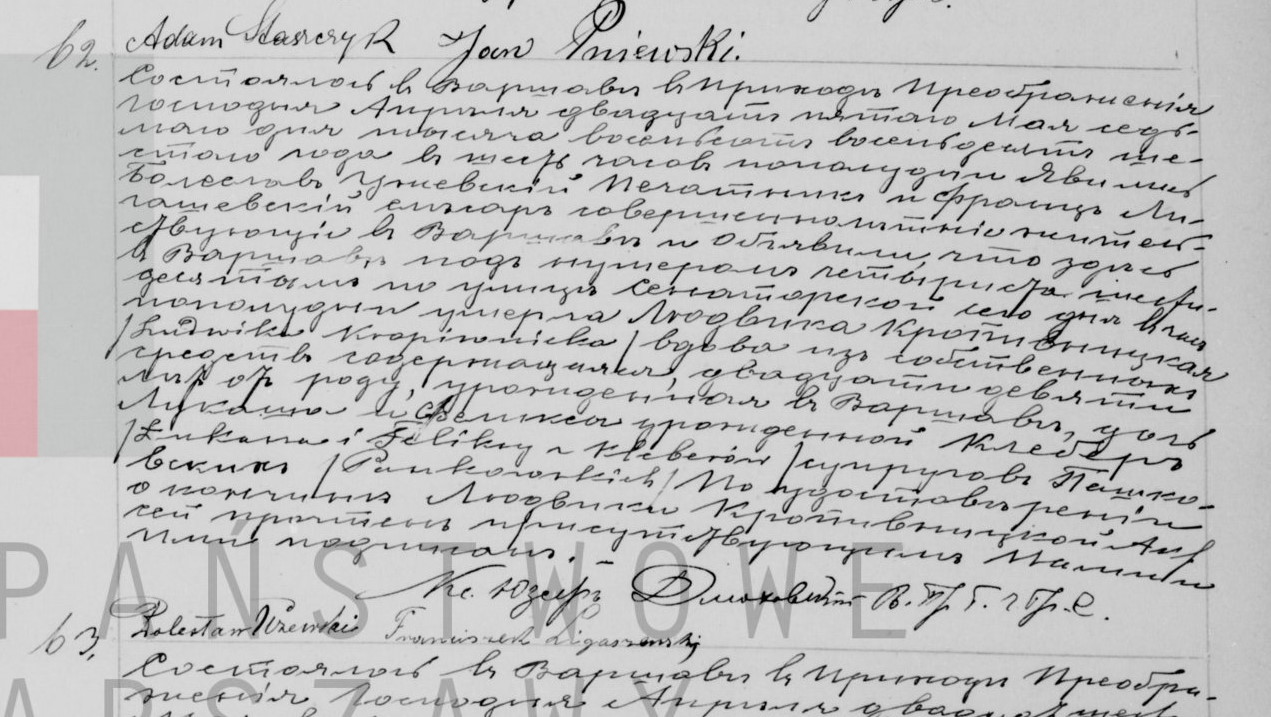 62. Adam Staszczyk Jan Pniewski.
Состоялось въ Варшавѣ въ Приходѣ Преображенія
Господня Апрѣля двадцать пятаго Мая седь-
маго дня тысяча восемьсотъ восемьдесятъ ше-
стаго года въ шесть часовъ пополудни Явились
Болеславъ Ужевскій Печатникъ и Францъ Ли-
гашевскій слесарь совершеннолѣтніе житель-
ствующіе въ Варшавѣ и Объявили, что здѣсь
въ Варшавѣ подъ нумеромъ четыреста шесть-
десятымъ по улицѣ Сенаторской сего дня въ часъ
пополудни умерла Людвика Кропивницкая
/Ludwika Kropiwnicka/ вдова изъ собственныхъ
средствъ содержащаяся, двадцати девяти
лѣтъ отъ роду, урожденная въ Варшавѣ, дочь
Лукаша и Феликсы урожденной Клеберъ
/Łukasza i Feliksy z Kleberów/ супруговъ Пашко-
вскихъ /Paszkowskich/ По удостовѣреніи
о кончинѣ Людвики Кропивницкой Актъ
сей прочтенъ присутствующимъ Нами и
ими подписанъ.
Кс. Юзефъ В. Пр. Г. г Пр. С.
63. Bolesław Użewski Franciszek Ligaszewski
Состоялось въ Варшавѣ въ Приходѣ Преобра-
женія Господня Апрѣля двадцать шест
PAŃSTWOWE
WARSZAWY